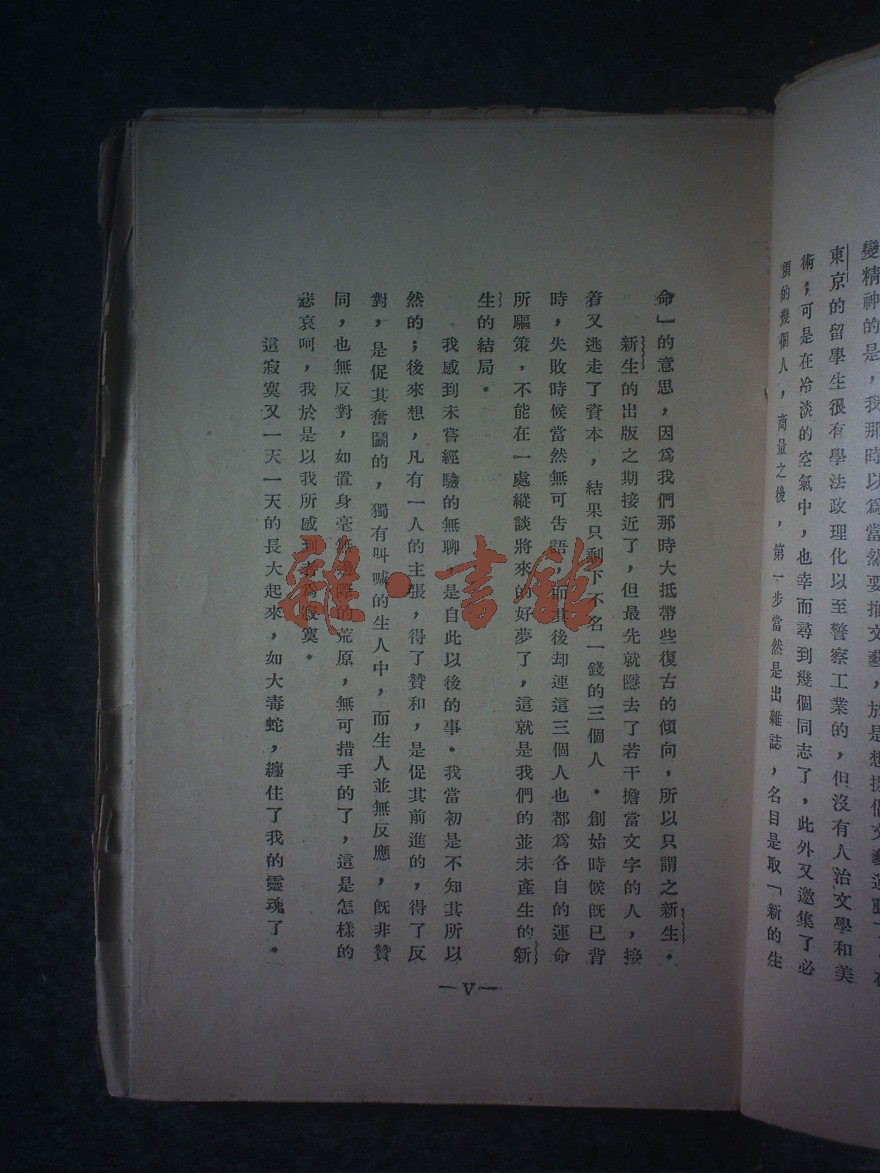 變精神的是，我那時以爲當然要推文藝，於是想提倡文藝運動了。在
東京的留學生很有學法政理化以至警察工業的，但沒有人治文學和美
術；可是在冷淡的空氣中，也幸而尋到幾個同志了，此外又邀集了必
須的幾個人，商量之後，第一步當然是出雜誌，名目是取「新的生
命」的意思，因爲我們那時大抵帶些復古的傾向，所以只謂之新生。
新生的出版之期接近了，但最先就隱去了若干擔當文字的人，接
着又逃走了資本，結果只剩下不名一錢的三個人。創始時候旣已背
時，失敗時候當然無可吿語，而其後却連這三個人也都爲各自的運命
所驅策，不能在一處縱談將來的好夢了，這就是我們的並未產生的新
生的結局。
我感到未嘗經驗的無聊，是自此以後的事。我當初是不知其所以
然的；後來想，凡有一人的主張，得了贊和，是促其前進的，得了反
對，是促其奮鬭的，獨有叫喊的生人中，而生人並無反應，旣非贊
同，也無反對，如置身毫無邊際的荒原，無可措手的了，這是怎樣的
悲哀呵，我於是以我所感到者爲寂寞。
這寂寞又一天一天的長大起來，如大毒蛇，纏住了我的靈魂了。
—V—
雜·書館